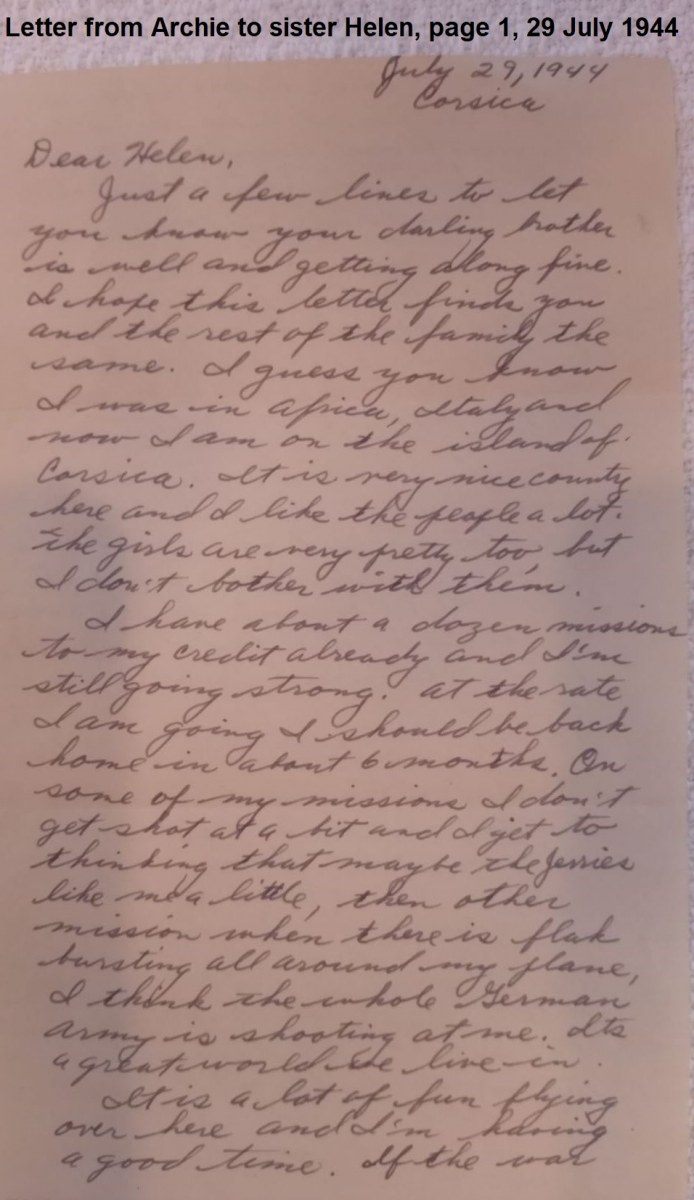 Letter from Archie to sister Helen, page 1, 29 July 1944
July 29, 1944
Corsica
Dear Helen,
Just a few lines to let
you know your darling brother
is well and getting along fine.
I hope this letter finds you
and the rest of the family the
same. I guess you know
I was in Africa, Italy and
now I am on the island of
Corsica. It is very nice county
here and I like the people a lot.
The girls are very pretty too, but
I don't bother with them.
I have about a dozen missions
to my credit already and I'm
still going strong. At the rate
I am going I should be back
home in about 6 months. On
some of my missions I don't
get shot at a bit and I get to
thinking that maybe the Jerries
like me a little, then other
mission when there is flak
bursting all around my plane,
I think the whole German
Army is shooting at me. Its
a great world we live in.
It is a lot of fun flying
over here and I'm having
a good time. If the war